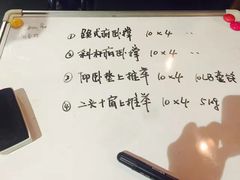 ① 跪式俯卧撑 10×4 ..
② 斜板俯卧撑 10×4 ..
③ 仰卧垫上推举 10×4 10LB壶铃
④ 二头十肩上推举 10×4 5kg